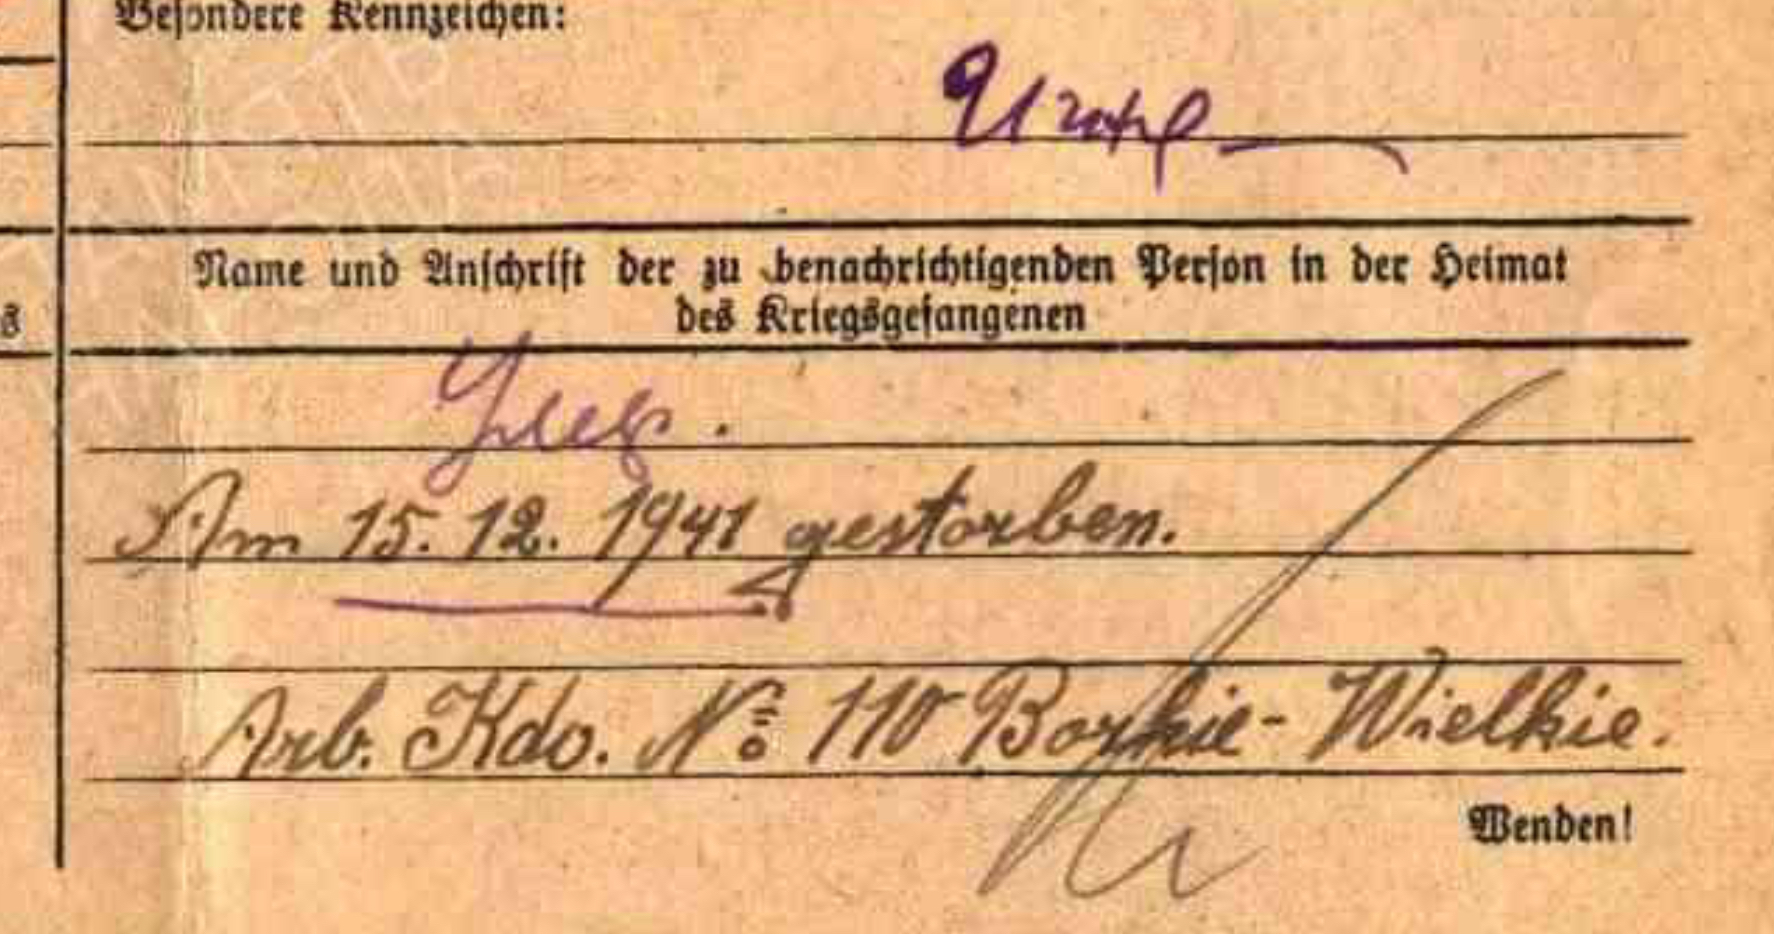 Besondere Kennzeichen:
Name und Anschrift der zu benachrichtigenden Person in der Heimat
des Kriegsgefangenen
Am 15. 12. 1941 gestorben.
Arb. Kdo. No 110 Borkie-Wielkie.
Wenden!